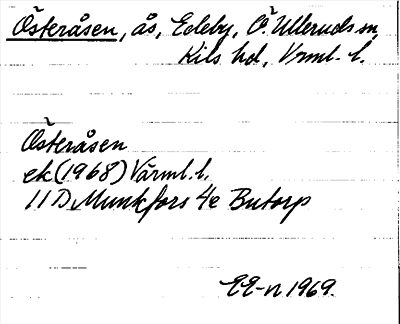 Österåsen, ås, Edeby, Ö. Ulleruds sn,
Kils hd, Vrml. l.
Österåsen
ek (1968) Värml. l.
11 D Munkfors 4e Butorp
EE-n 1969.